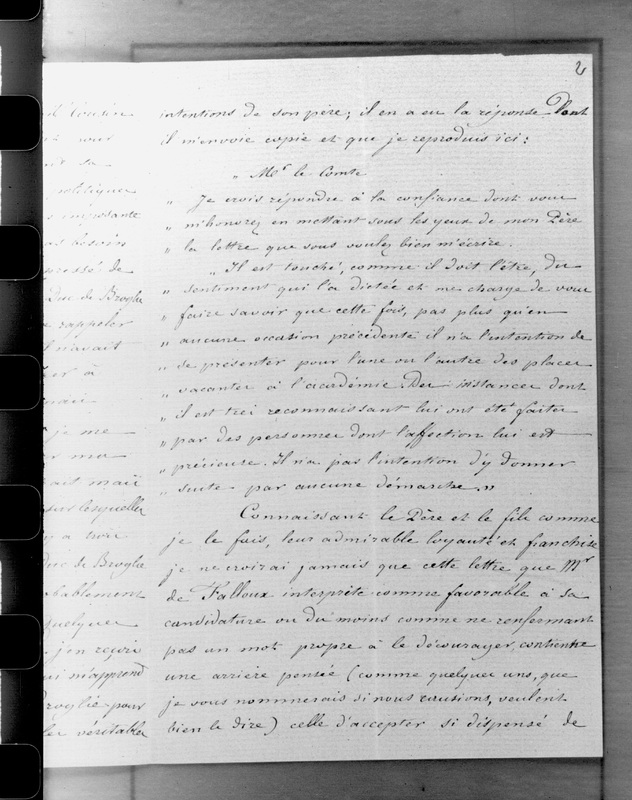 2
intentions de son père; il en a eu la réponse dont
il m'envoie copie et que je reproduis ici:
" Mr le Comte
" Je crois répondre à la confiance dont vous
" m'honorez en mettant sous les yeux de mon Père
" la lettre que vous voulez bien m'écrire.
" Il est touché, comme il doit l'être, du
" sentiment qui l'a dictée et me charge de vous
" faire savoir que cette fois, pas plus qu'en
" aucune occasion précédente il n'a l'intention de
" se présenter pour l'une ou l'autre des places
" vacantes à l'académie. Des instances dont
" il est très reconnaissant lui ont été faites
" par des personnes dont l'affection lui est
" précieuse. Il n'a pas l'intention d'y donner
" suite par aucune démarche. "
Connaissant le Père et le fils comme
je le fais, leur admirable loyauté et franchise
je ne croirai jamais que cette lettre que Mr
de Falloux interprète comme favorable à sa
candidature ou du moins comme ne renfermant
pas un mot propre à le décourager, contienne
une arrière pensée (comme quelques uns, que
je vous nommerais si nous causions, veulent
bien le dire) celle d'accepter si dispensé de
Cousin
vous
sa
politiques
imposante
besoin
pressé de
Duc de Broglie
rappeler
n'avait
à
je me
ma
mais
sur lesquelles
a trois
duc de Broglie
quelques
j'en reçois
m'apprend
Broglie pour
les véritables